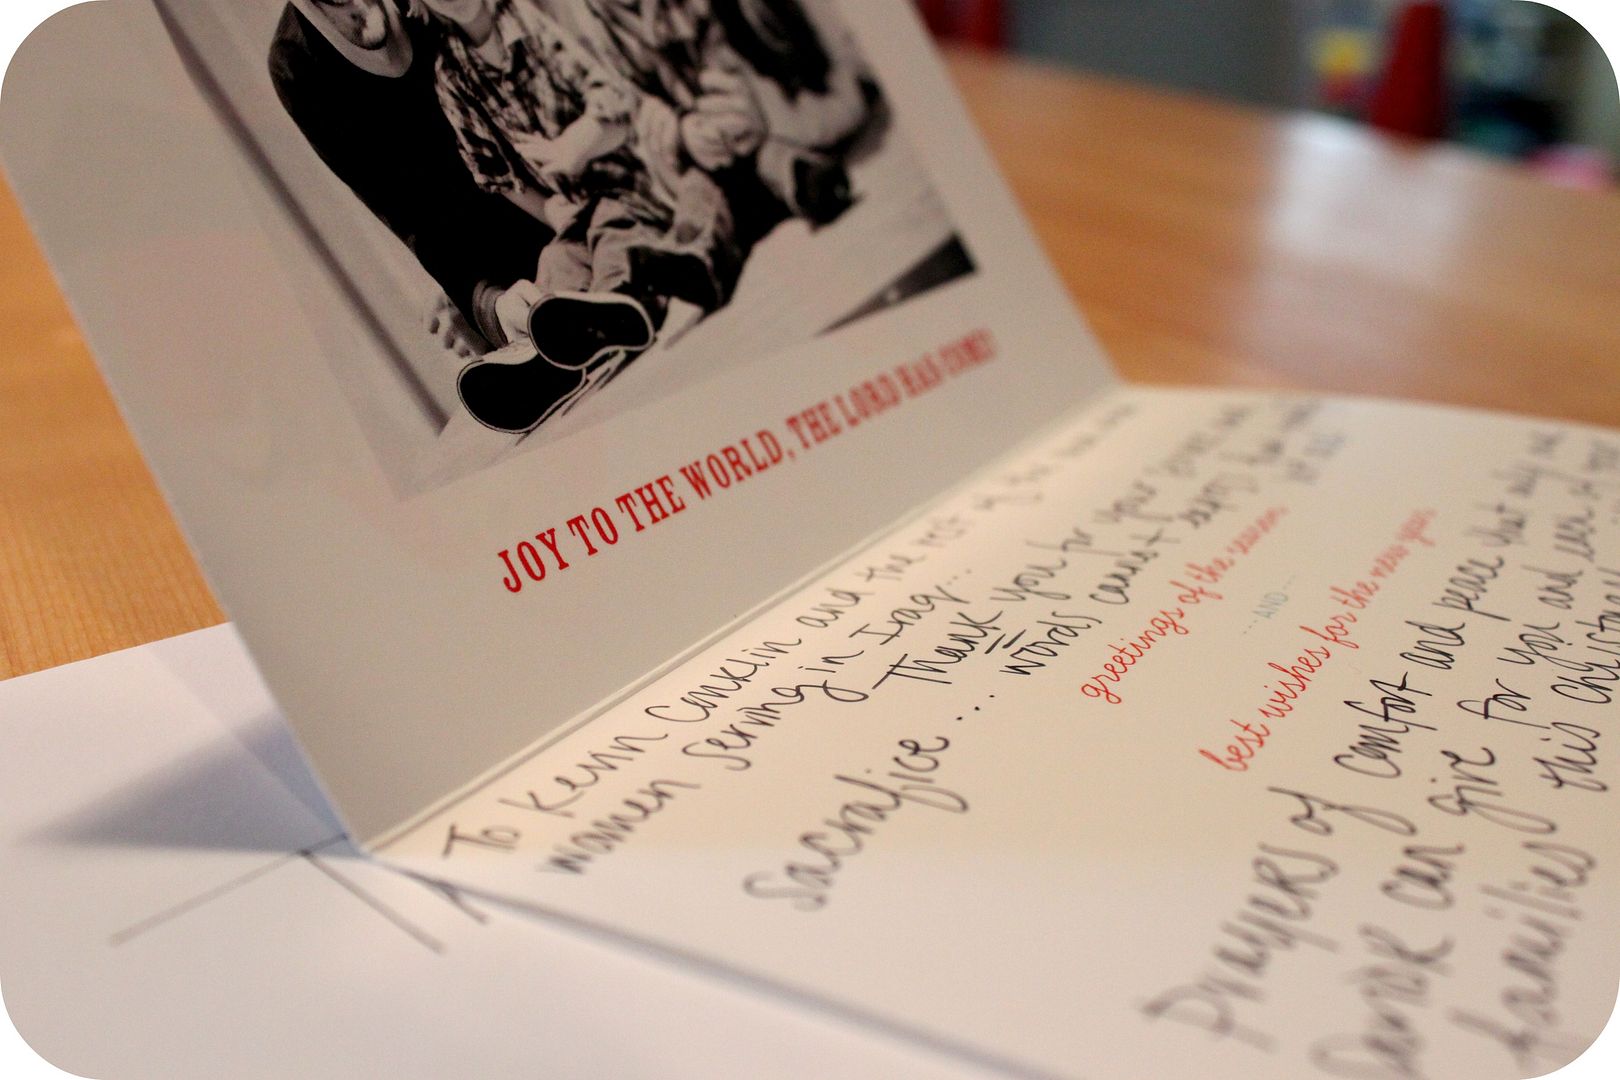 JOY TO THE WORLD, THE LORD HAS COME!
To Kevin Conklin and the rest of the men and
women serving in Iraq...
Thank you for your service and
Sacrafice ... words cannot express how
greetings of the season
... AND ...
best wishes for the new year
Prayers of comfort and peace that only
can give for you and
families this Christmas